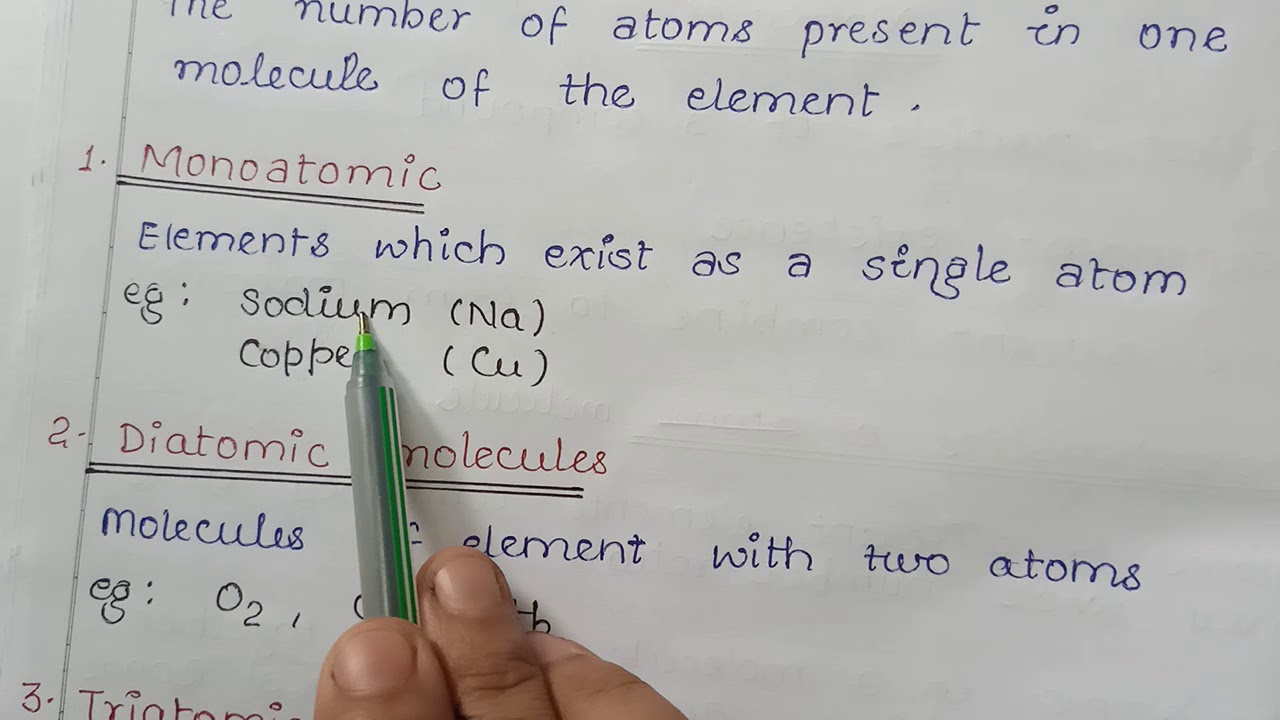 The number of atoms present in one
molecule of the element.
1. Monoatomic
Elements which exist as a single atom
eg: Sodium (Na)
Copper (Cu)
2. Diatomic molecules
Molecules element with two atoms
eg: O2,
3. Triatomic